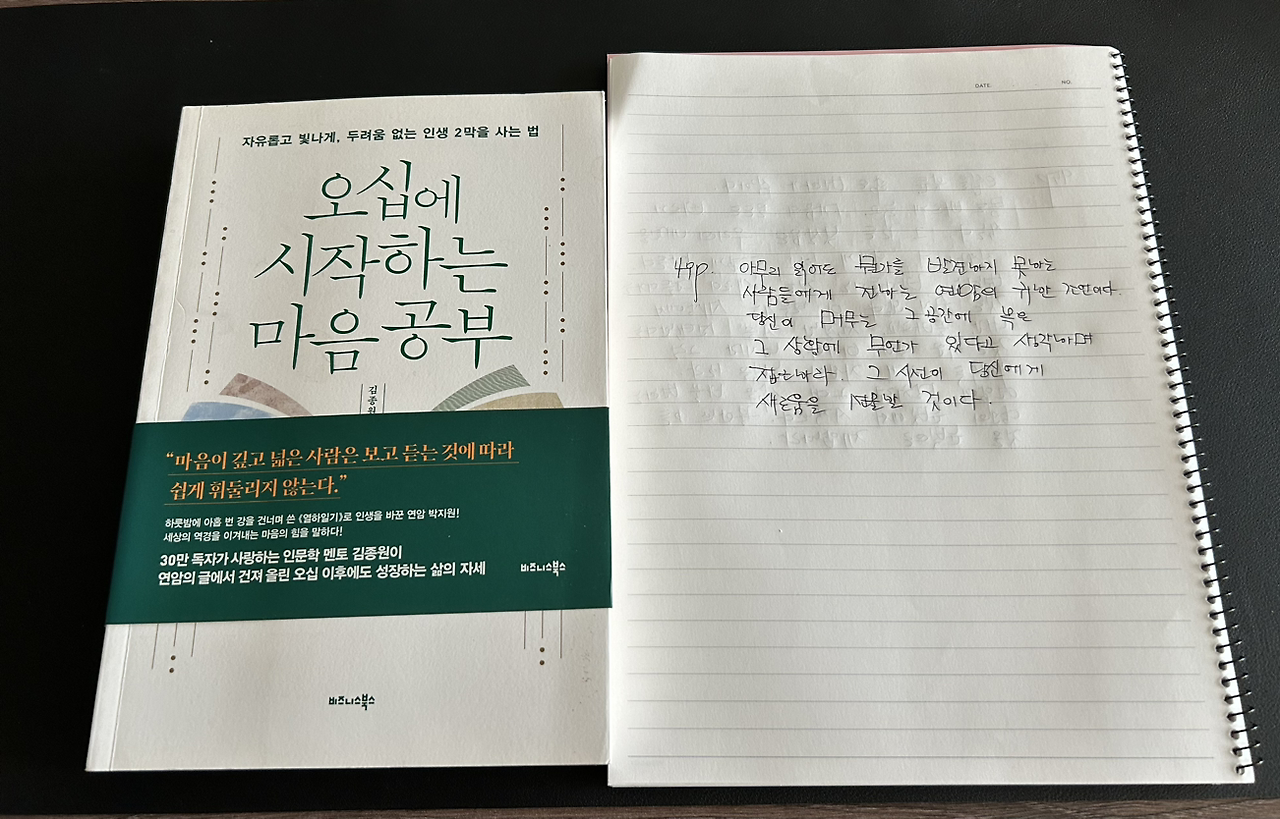 자유롭고 빛나게, 두려움 없는 인생 2막을 사는 법
오십에
시작하는
마음 공부
김종원
“마음이 깊고 넓은 사람은 보고 듣는 것에 따라
쉽게 휘둘리지 않는다.”
하룻밤에 아홉 번 강을 건너며 쓴 《열하일기》로 인생을 바꾼 연암 박지원!
세상의 역경을 이겨내는 마음의 힘을 말하다!
30만 독자가 사랑하는 인문학 멘토 김종원이
연암의 글에서 건져 올린 오십 이후에도 성장하는 삶의 자세
비즈니스북스
비즈니스북스
DATE. NO.
49p. 아무리 읽어도 뭔가를 발견하지 못하는
사람들에게 전하는 연암의 귀한 조언이다.
당신이 머무는 그 공간에 혹은
그 상황에 무언가 있다고 생각하며
접근하라. 그 시선이 당신에게
새로움을 선물할 것이다.